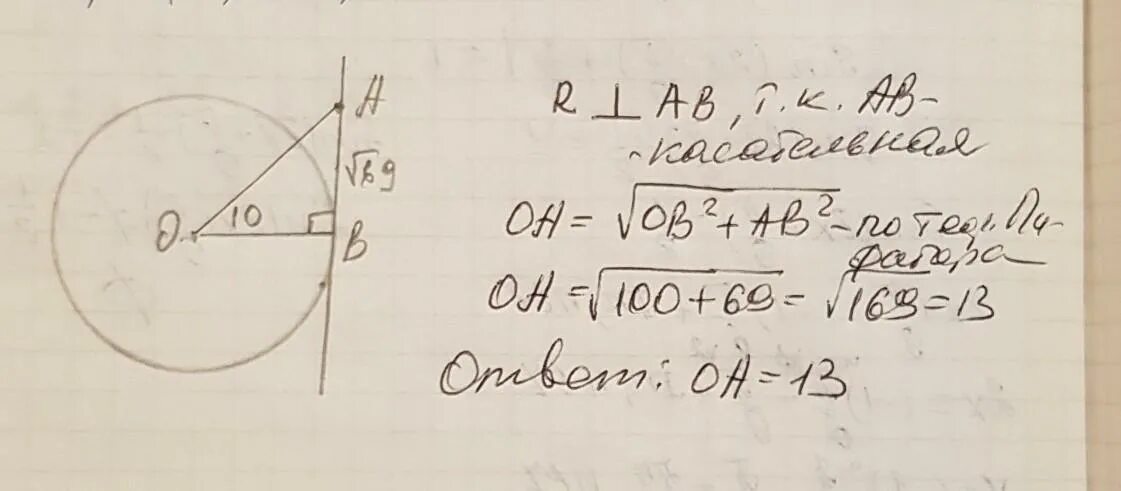 A
√69
O
10
B
R ⊥ AB, т.к. AB-
-касательная
OA = √OB² + AB² - по теор. Пи-
фагора
OA = √100 + 69 = √169 = 13
Ответ: OA = 13